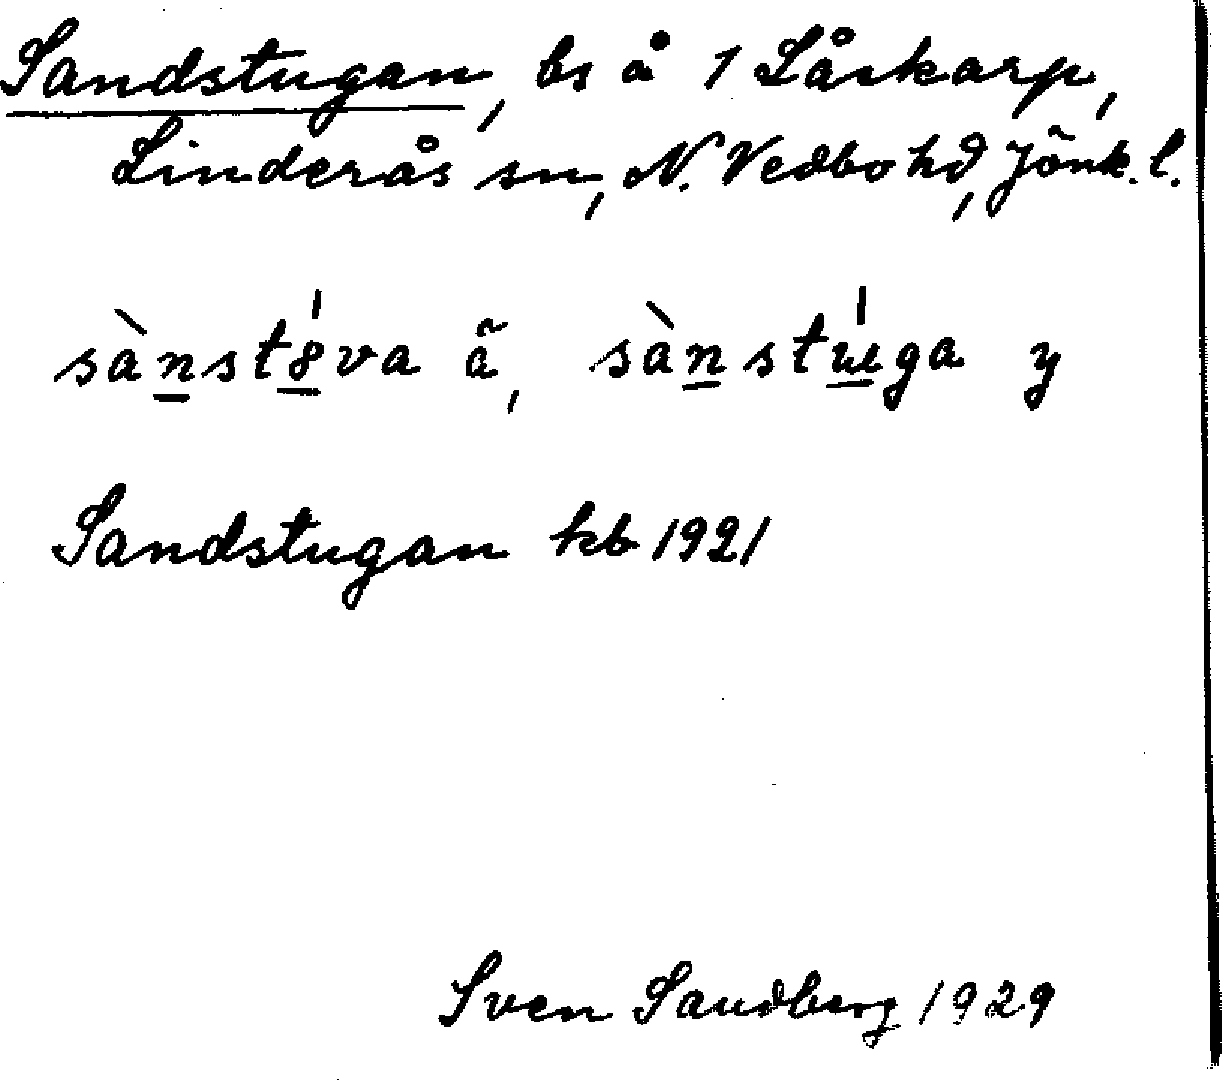 Sandstugan, bs å 1 Låskarp,
Linderås sn, N. Vedbo hd, Jönk. l.
sànst8́va ä, sànstɯ́ga y
Sandstugan kb 1921
Sven Sandberg 1929